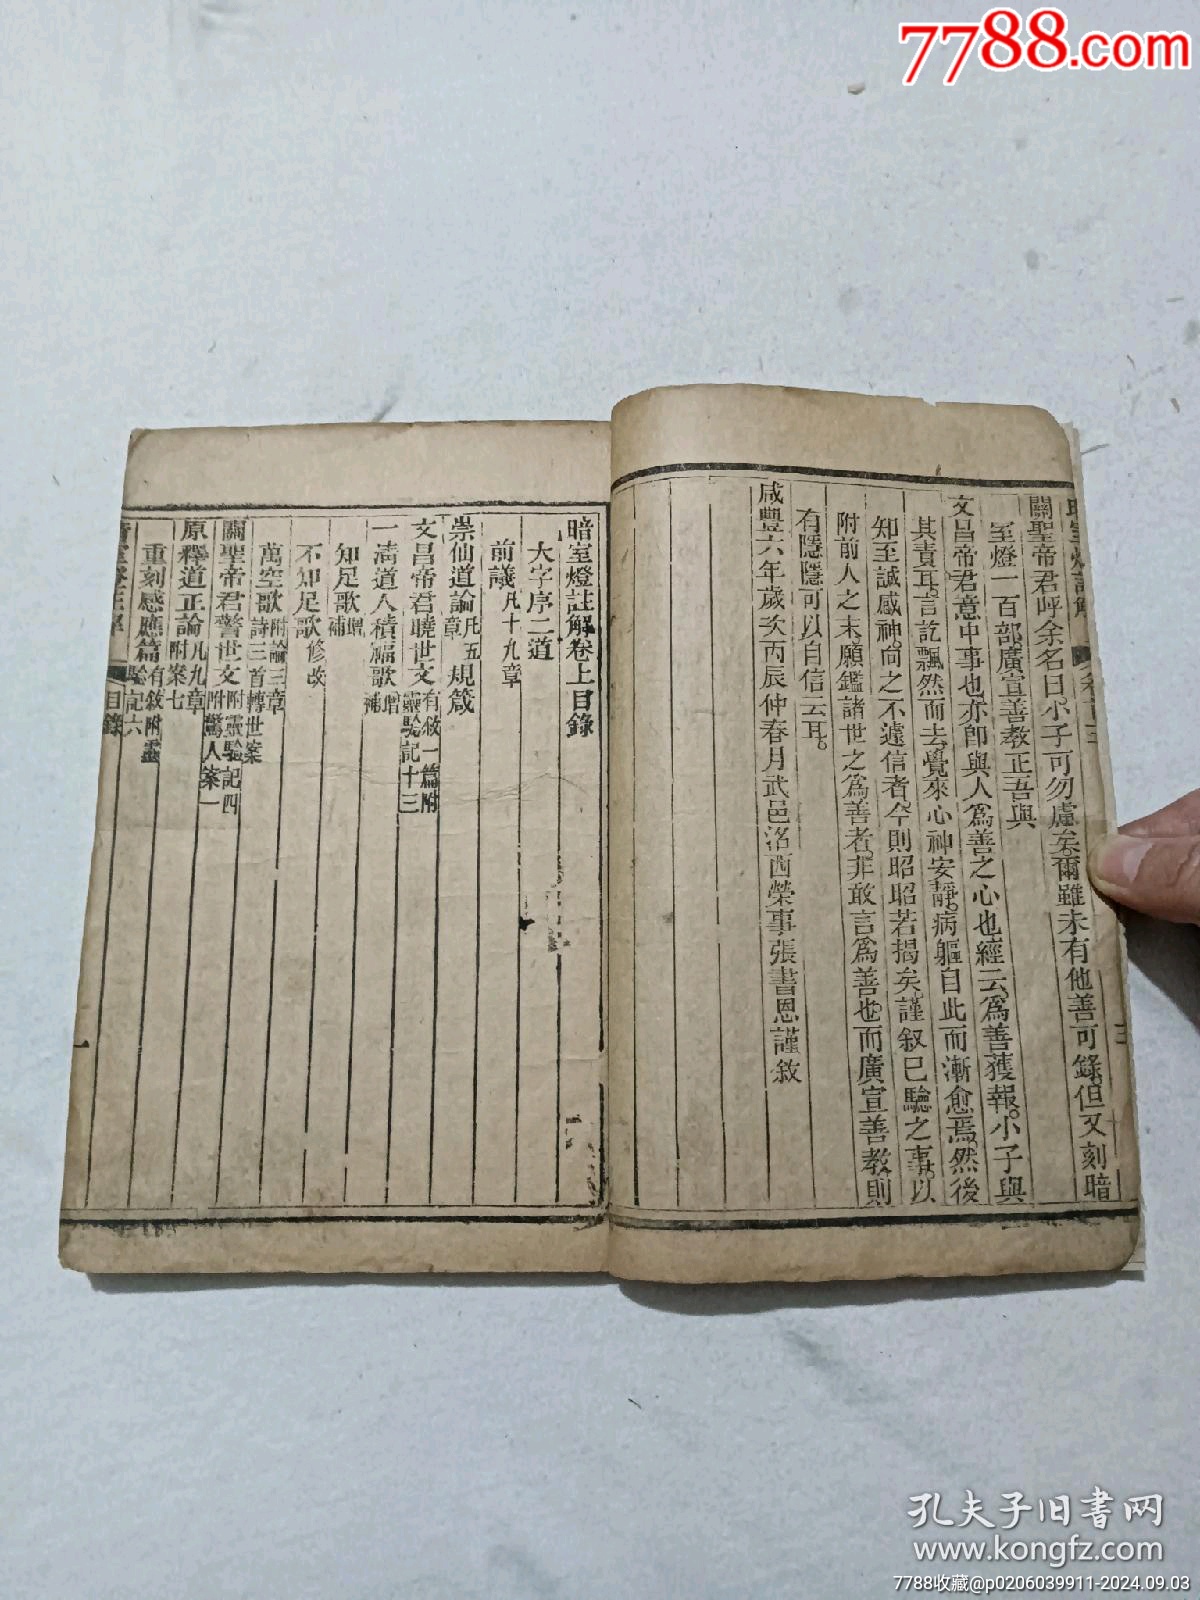 7788.com
暗室燈註解
關聖帝君呼余名曰小子可勿慮矣爾雖未有他善可錄但又刻暗
室燈一百部廣宣善教正吾與
文昌帝君意中事也亦卽與人爲善之心也經云爲善獲報小子與
其責耳言訖飄然而去覺來心神安靜病軀自此而漸愈焉然後
知至誠感神向之不遽信者今則昭昭若揭矣謹叙已驗之事以
附前人之末願鑑諸世之爲善者非敢言爲善也而廣宣善教則
有隱隱可以自信云耳
咸豐六年歲次丙辰仲春月武邑洺西榮事張書恩謹敘
暗室燈註解卷上目錄
大字序二道
前議凡十九章
崇仙道論凡五章 規箴
文昌帝君曉世文有敘一篇附靈驗記十三
一清道人積福歌增補
知足歌增補
不知足歌修改
萬空歌附論三章詩三首轉世案
關聖帝君警世文附靈驗記四附驚人案一
原釋道正論凡九章附案七
重刻感應篇有敘附靈驗記六
目錄
一
孔夫子旧书网
www.kongfz.com
7788收藏@p0206039911-2024.09.03